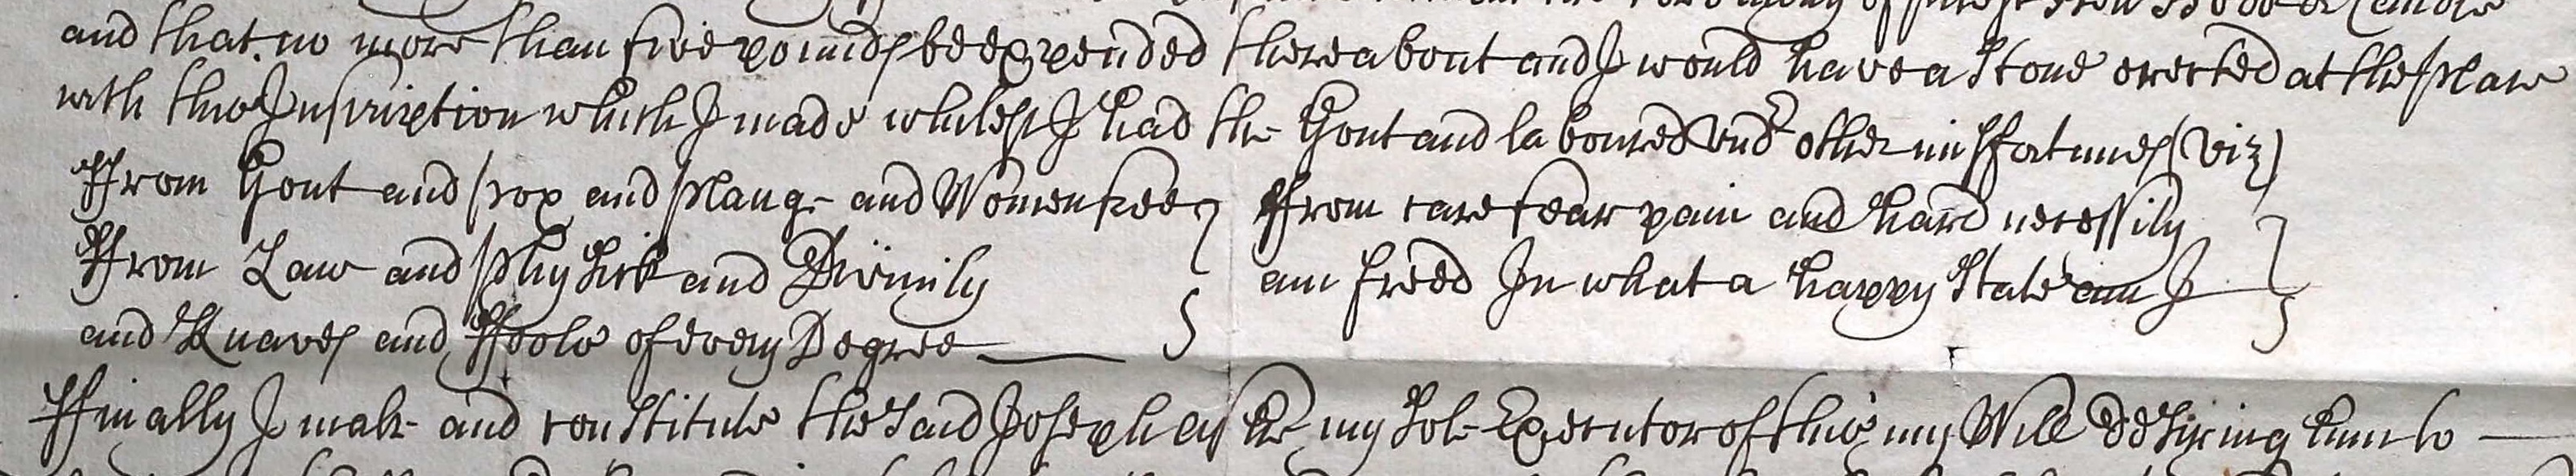 and that no more than five pounds be expended thereabout and I would have a Stone erected at the place
with this Inscription which I made whilest I had the Gout and laboured undr other missfortunes (viz)
ffrom Gout and pox and plague and Women free ffrom care fear pain and hard necessity
ffrom Law and physick and Divinity am freed In what a happy State am I
and Knaves and ffools of every Degree
ffinally I make and constitute the said Joseph my sole Executor of this my Will desiring him to